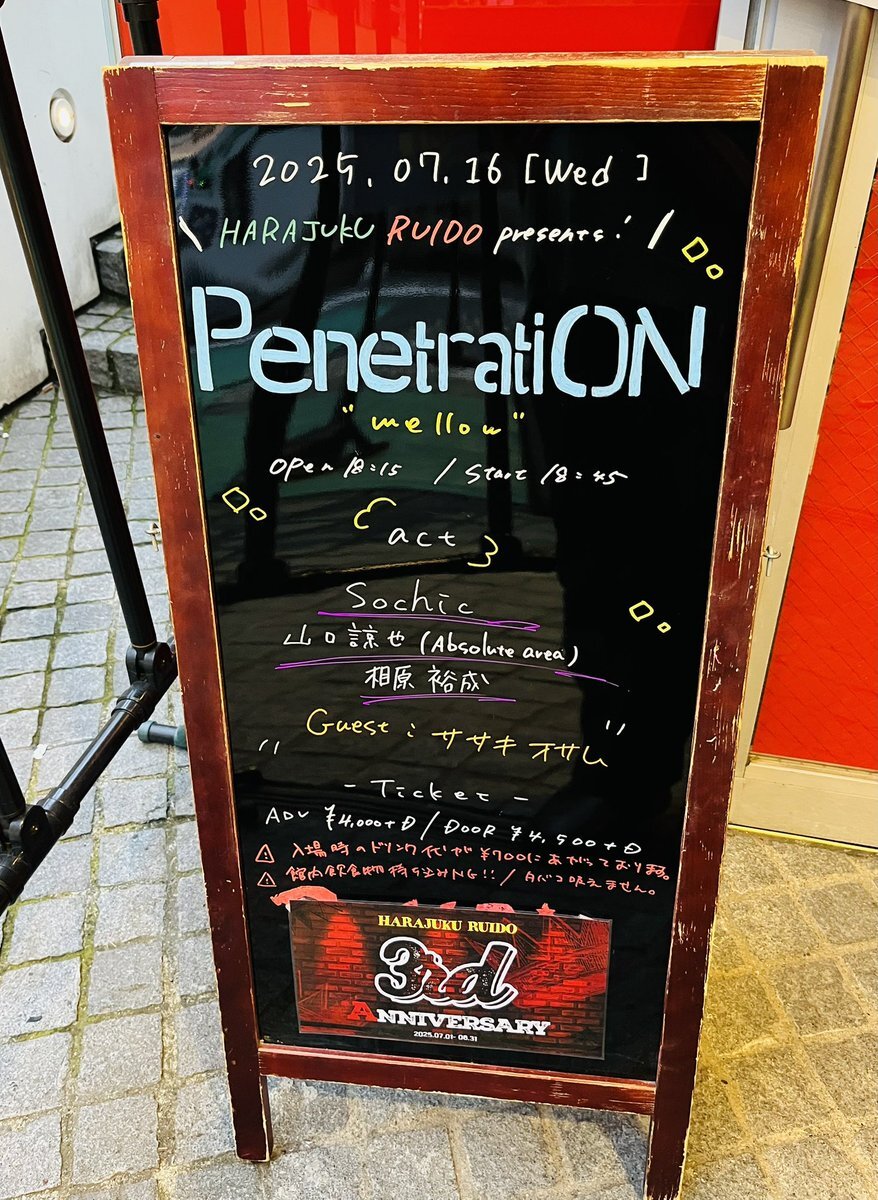 2025. 07. 16 [Wed]
\ HARAJUKU RUIDO presents! /
PenetratiON
"mellow"
OPen 18:15 / Start 18:45
act
Sochic
山口諒也 (Absolute area)
相原裕成
Guest : ササキオサム
- Ticket -
ADV ¥4,000+D / DOOR ¥4,500+D
⚠ 入場時のドリンク代が¥700にあがっております。
⚠ 館内飲食物持ち込みNG!! / タバコ吸えません。
HARAJUKU RUIDO
3rd
ANNIVERSARY
2025.07.01- 08.31